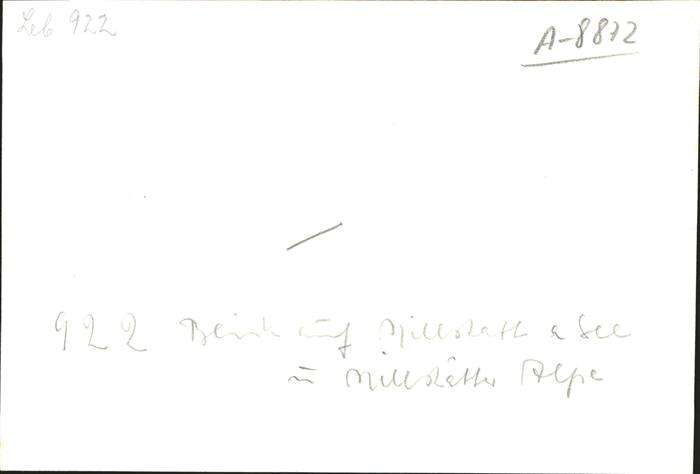 Leb 922
A-8872
922 Blick auf Millstatt a See
u Millstätter Alpe